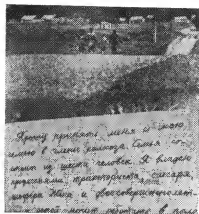 Прошу принять меня и мою
семью в члены колхоза. Семья со-
стоит из шести человек. Я владею
профессиями тракториста, слесаря,
шофера. Жена и
работать в